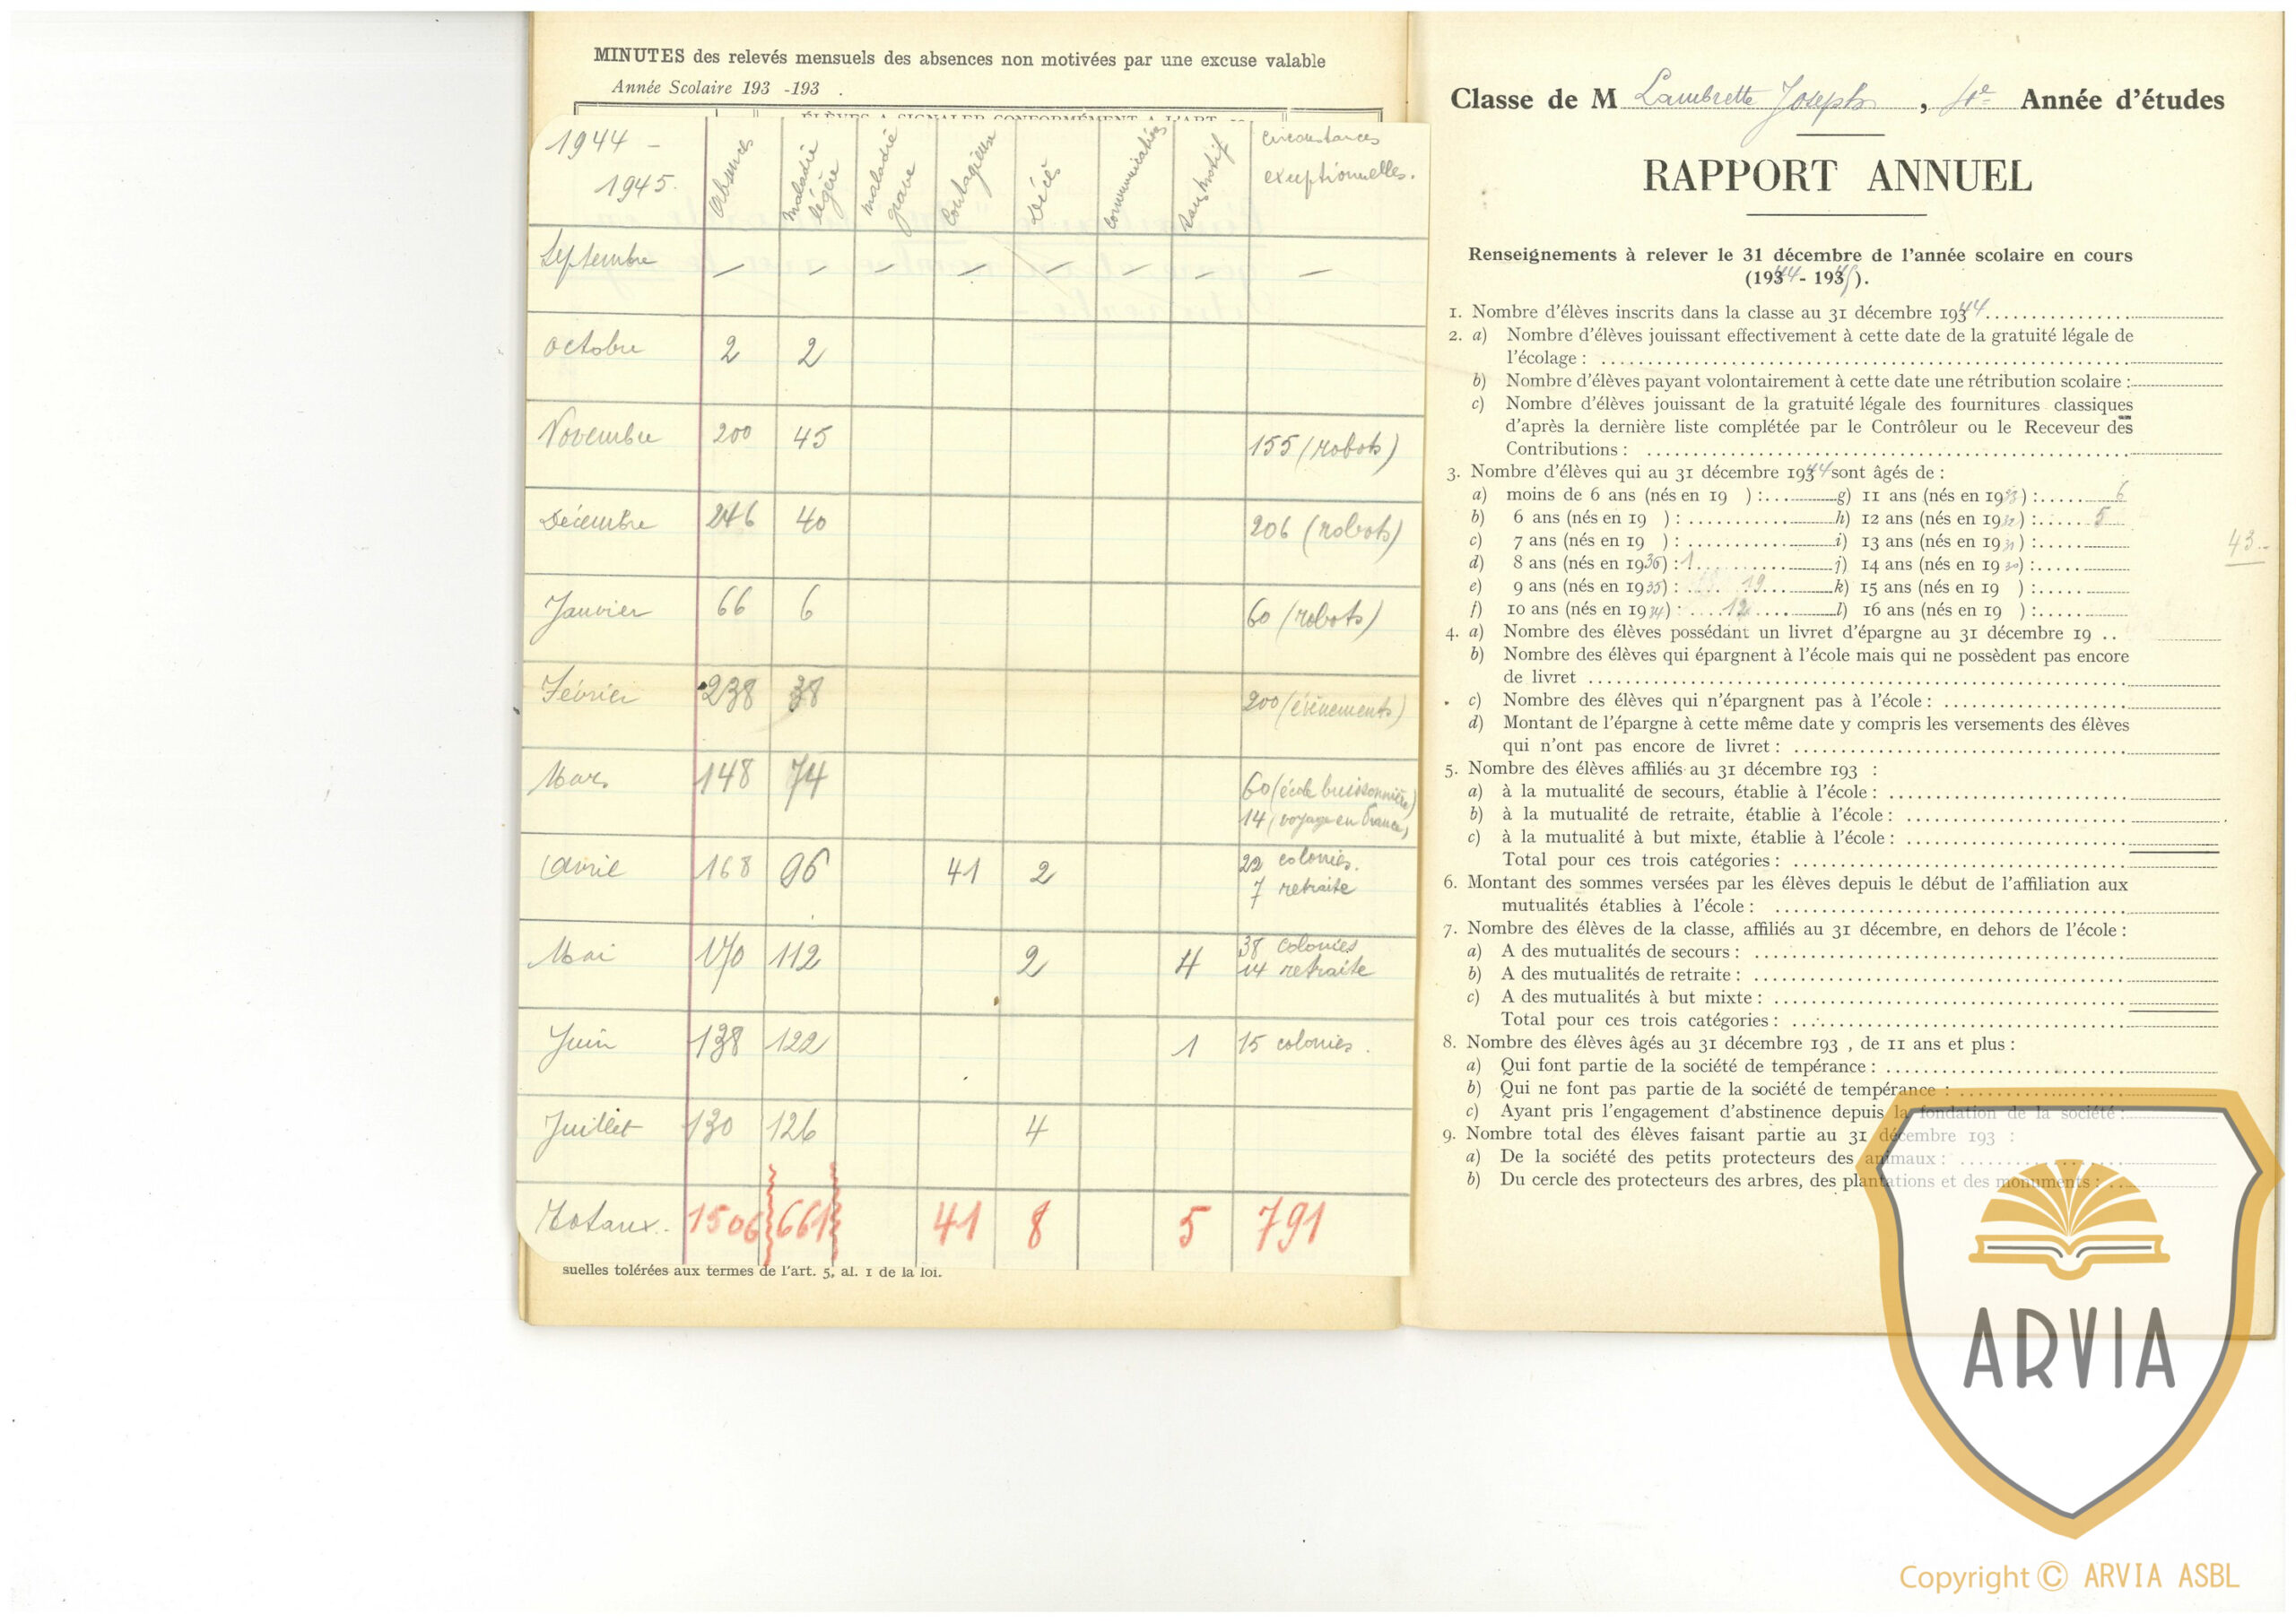 MINUTES des relevés mensuels des absences non motivées par une excuse valable
Année Scolaire 193 -193 .
1944 - 1945. Absences maladie légère maladie grave Contagieuse Décès communiation sans motif circonstances exceptionnelles.
Septembre — — — — — — — —
Octobre 2 2
Novembre 200 45 155 (robots)
Décembre 246 40 206 (robots)
Janvier 66 6 60 (robots)
Février 238 38 200 (événements)
Mars 148 74 60 (école buissonnière)
14 (voyage en France)
Avril 168 96 41 2 22 colonies.
7 retraite
Mai 170 112 2 4 38 colonies
14 retraite
Juin 138 122 1 15 colonies.
Juillet 130 126 4
Totaux. 1506 661 41 8 5 791
suelles tolérées aux termes de l'art. 5, al. 1 de la loi.
Classe de M Lambrette Joseph , 4e Année d'études
RAPPORT ANNUEL
Renseignements à relever le 31 décembre de l'année scolaire en cours
(1944 - 1945).
1. Nombre d'élèves inscrits dans la classe au 31 décembre 1944
2. a) Nombre d'élèves jouissant effectivement à cette date de la gratuité légale de
l'écolage :
b) Nombre d'élèves payant volontairement à cette date une rétribution scolaire :
c) Nombre d'élèves jouissant de la gratuité légale des fournitures classiques
d'après la dernière liste complétée par le Contrôleur ou le Receveur des
Contributions :
3. Nombre d'élèves qui au 31 décembre 1944 sont âgés de :
a) moins de 6 ans (nés en 19 ) : g) 11 ans (nés en 1933) : 6
b) 6 ans (nés en 19 ) : h) 12 ans (nés en 1932) : 5
c) 7 ans (nés en 19 ) : i) 13 ans (nés en 1931) :
43.-
d) 8 ans (nés en 1936) : 1 j) 14 ans (nés en 1930) :
e) 9 ans (nés en 1935) : 19 k) 15 ans (nés en 19 ) :
f) 10 ans (nés en 1934) : 12 l) 16 ans (nés en 19 ) :
4. a) Nombre des élèves possédant un livret d'épargne au 31 décembre 19 ..
b) Nombre des élèves qui épargnent à l'école mais qui ne possèdent pas encore
de livret
c) Nombre des élèves qui n'épargnent pas à l'école :
d) Montant de l'épargne à cette même date y compris les versements des élèves
qui n'ont pas encore de livret :
5. Nombre des élèves affiliés au 31 décembre 193 :
a) à la mutualité de secours, établie à l'école :
b) à la mutualité de retraite, établie à l'école :
c) à la mutualité à but mixte, établie à l'école :
Total pour ces trois catégories :
6. Montant des sommes versées par les élèves depuis le début de l'affiliation aux
mutualités établies à l'école :
7. Nombre des élèves de la classe, affiliés au 31 décembre, en dehors de l'école :
a) A des mutualités de secours :
b) A des mutualités de retraite :
c) A des mutualités à but mixte :
Total pour ces trois catégories :
8. Nombre des élèves âgés au 31 décembre 193 , de 11 ans et plus :
a) Qui font partie de la société de tempérance :
b) Qui ne font pas partie de la société de tempérance :
c) Ayant pris l'engagement d'abstinence depuis la fondation de la société :
9. Nombre total des élèves faisant partie au 31 décembre 193 :
a) De la société des petits protecteurs des animaux :
b) Du cercle des protecteurs des arbres, des plantations et des monuments :
ARVIA
Copyright © ARVIA ASBL